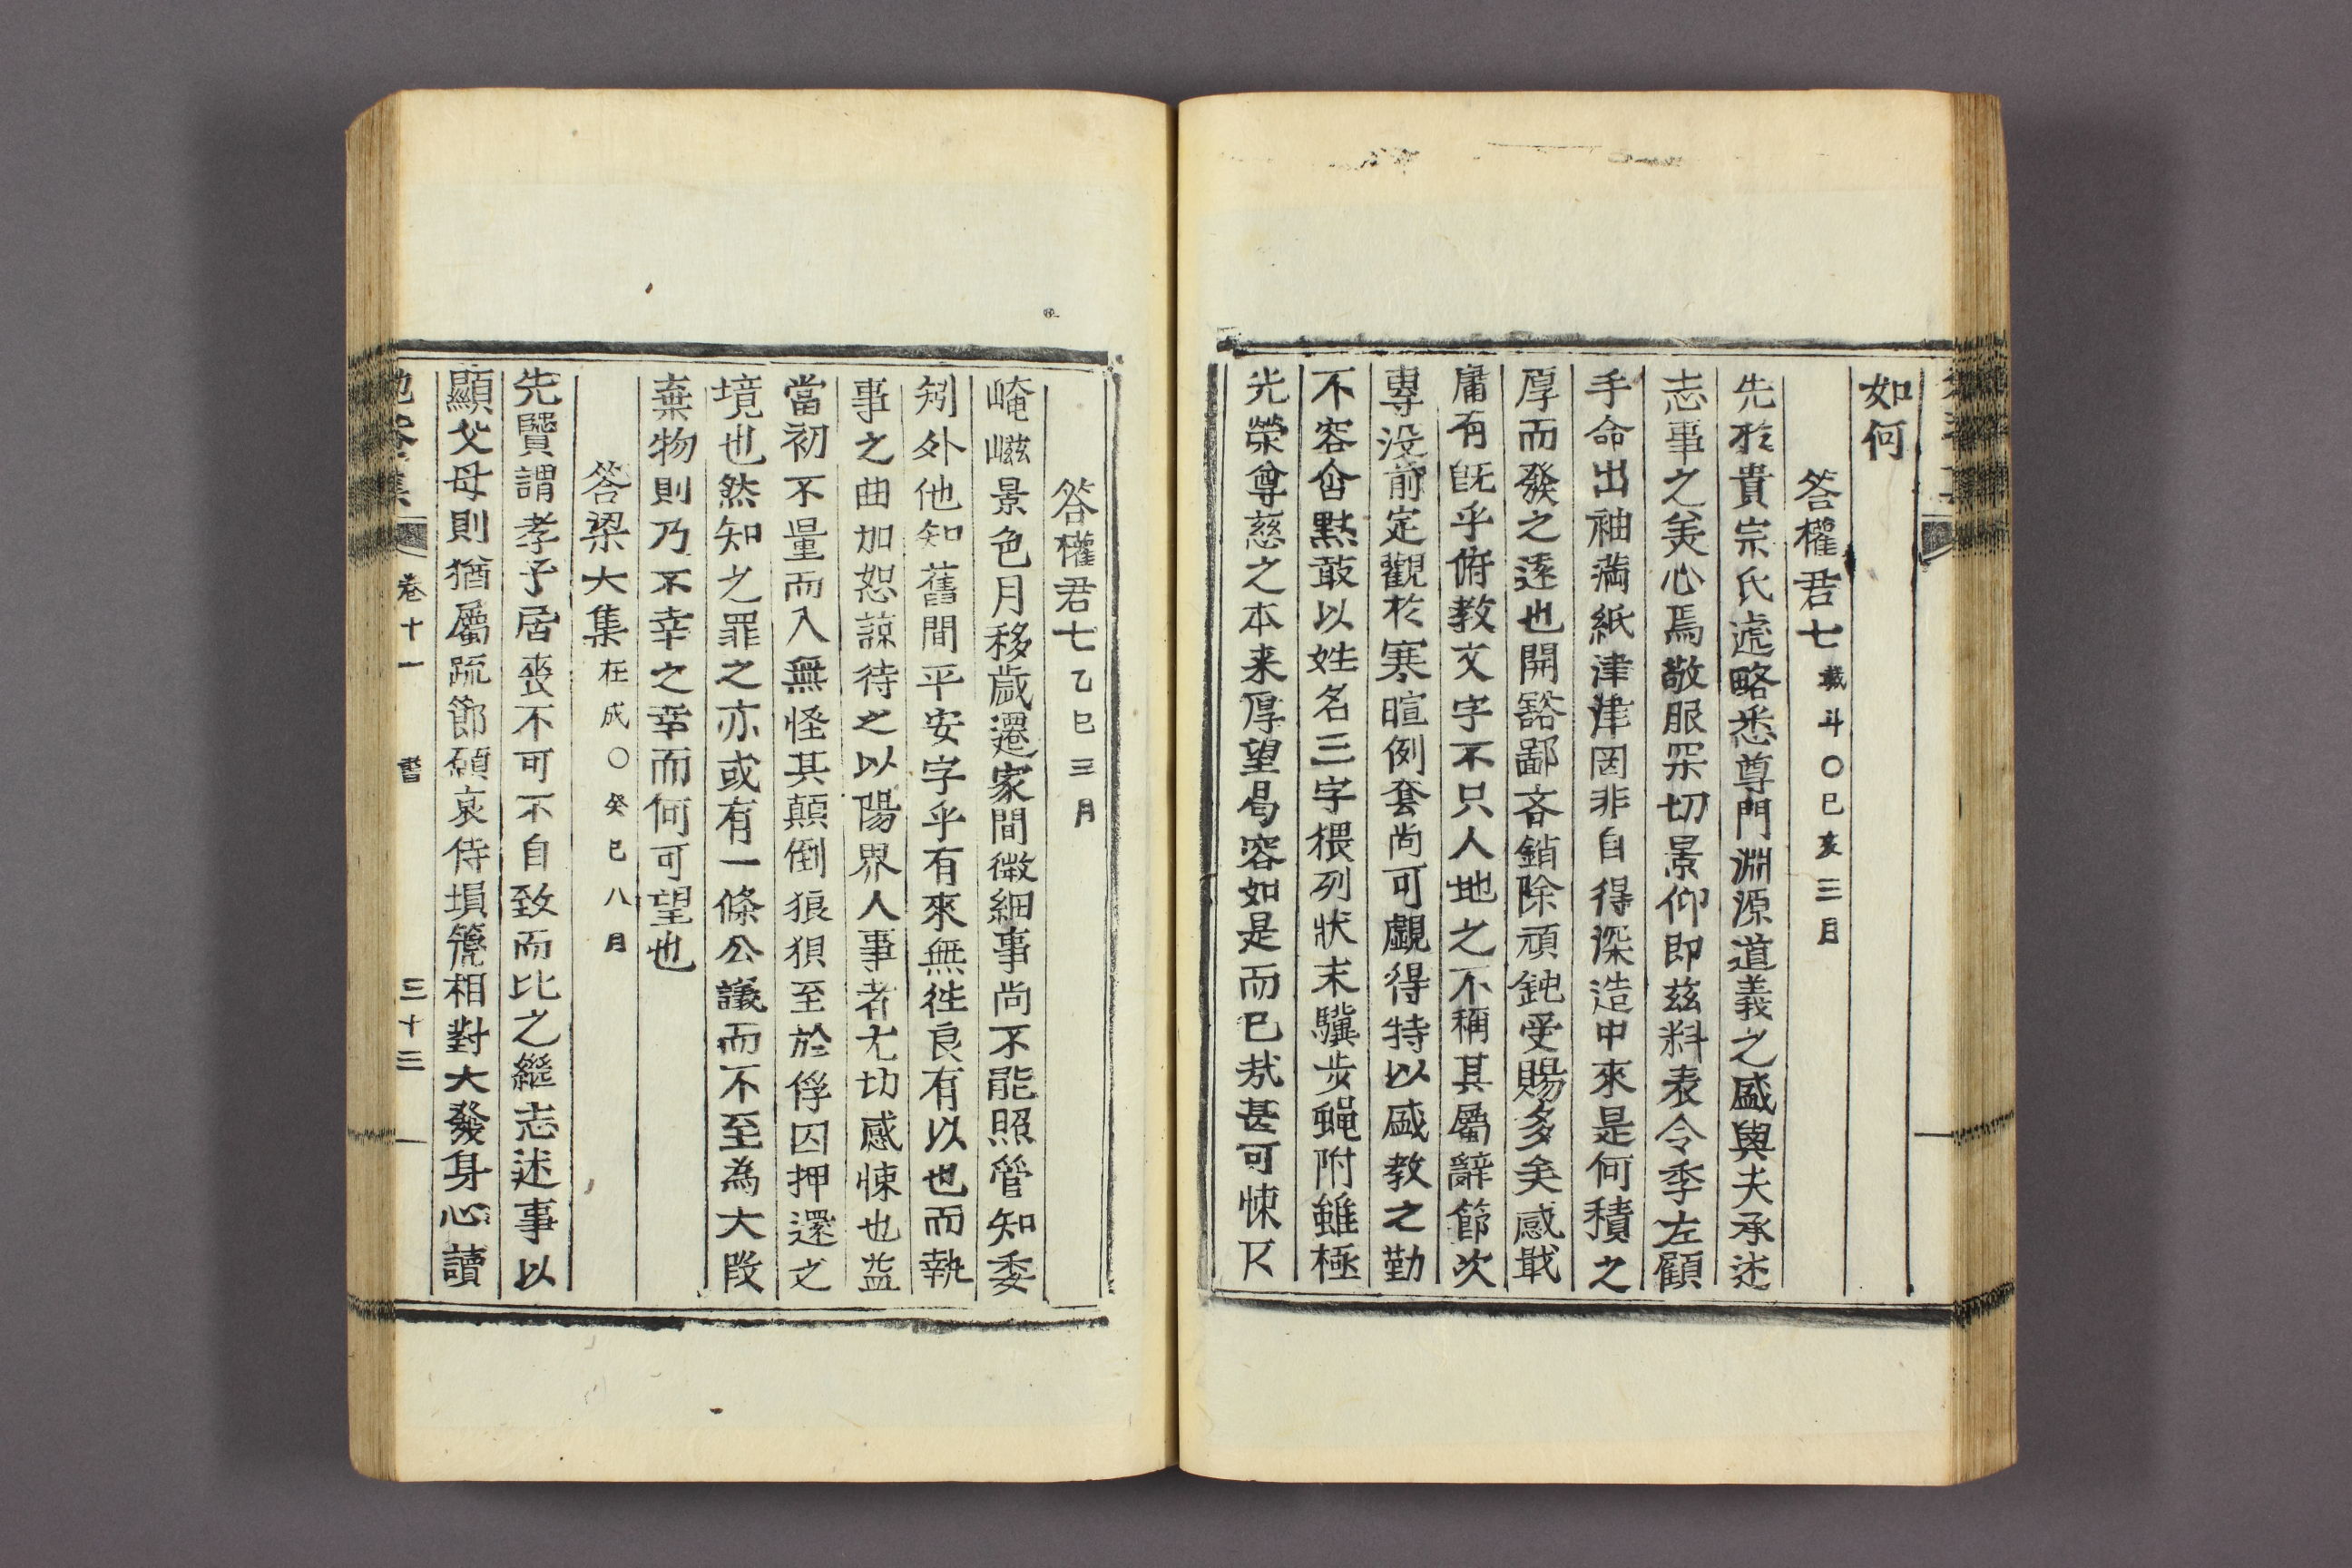 如何
答權君七 載斗○己亥三月
先於貴宗氏處略悉尊門淵源道義之盛與夫承述
志事之美心焉敬服采切景仰即玆料表令季左顧
手命出袖滿紙津津固非自得深造中來是何積之
厚而發之遂也開豁鄙吝銷除頑鈍受賜多矣感戢
庸有旣乎俯敎文字不只人地之不稱其屬辭節次
專沒前定觀於寒暄例套尚可覷得特以盛敎之勤
不容含默敢以姓名三字猥列狀末驥步蠅附雖極
光榮尊慈之本来厚望曷容如是而已哉甚可悚仄
答權君七 乙巳三月
崦嵫景色月移歲遷家間微細事尚不能照管知委
矧外他知舊間平安字乎有來無徃良有以也而執
事之曲加恕諒待之以陽界人事者尤切感悚也益
當初不量而入無怪其顛倒狼狽至於俘囚押還之
境也然知之罪之亦或有一條公議而不至為大段
棄物則乃不幸之幸而何可望也
答梁大集 在成○癸巳八月
先賢謂孝子居喪不可不自致而比之繼志述事以
顯父母則猶屬疏節願哀侍塤篪相對大發身心讀
卷十一 書 三十三